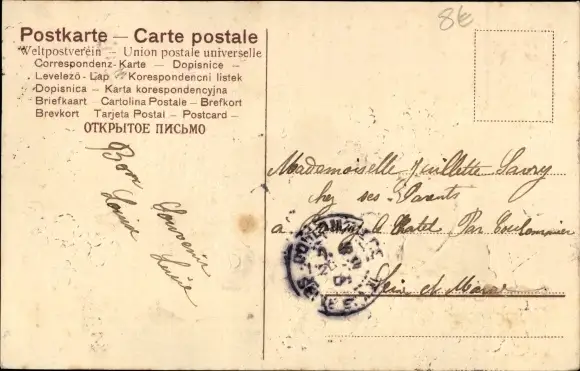 8€
Postkarte — Carte postale
Weltpostverein — Union postale universelle
Correspondenz-Karte — Dopisnice —
Levelezö-Lap — Korespondencni listek
Dopisnica — Karta korespondencyjna
Briefkaart Cartolina Postale — Brefkort
Brevkort Tarjeta Postal — Postcard —
ОТКРЫТОЕ ПИСЬМО
Bon Souvenir
Louise
Mademoiselle Juillette
chez ses Parents
a Chatel Par Coulommier
Seine et Marne